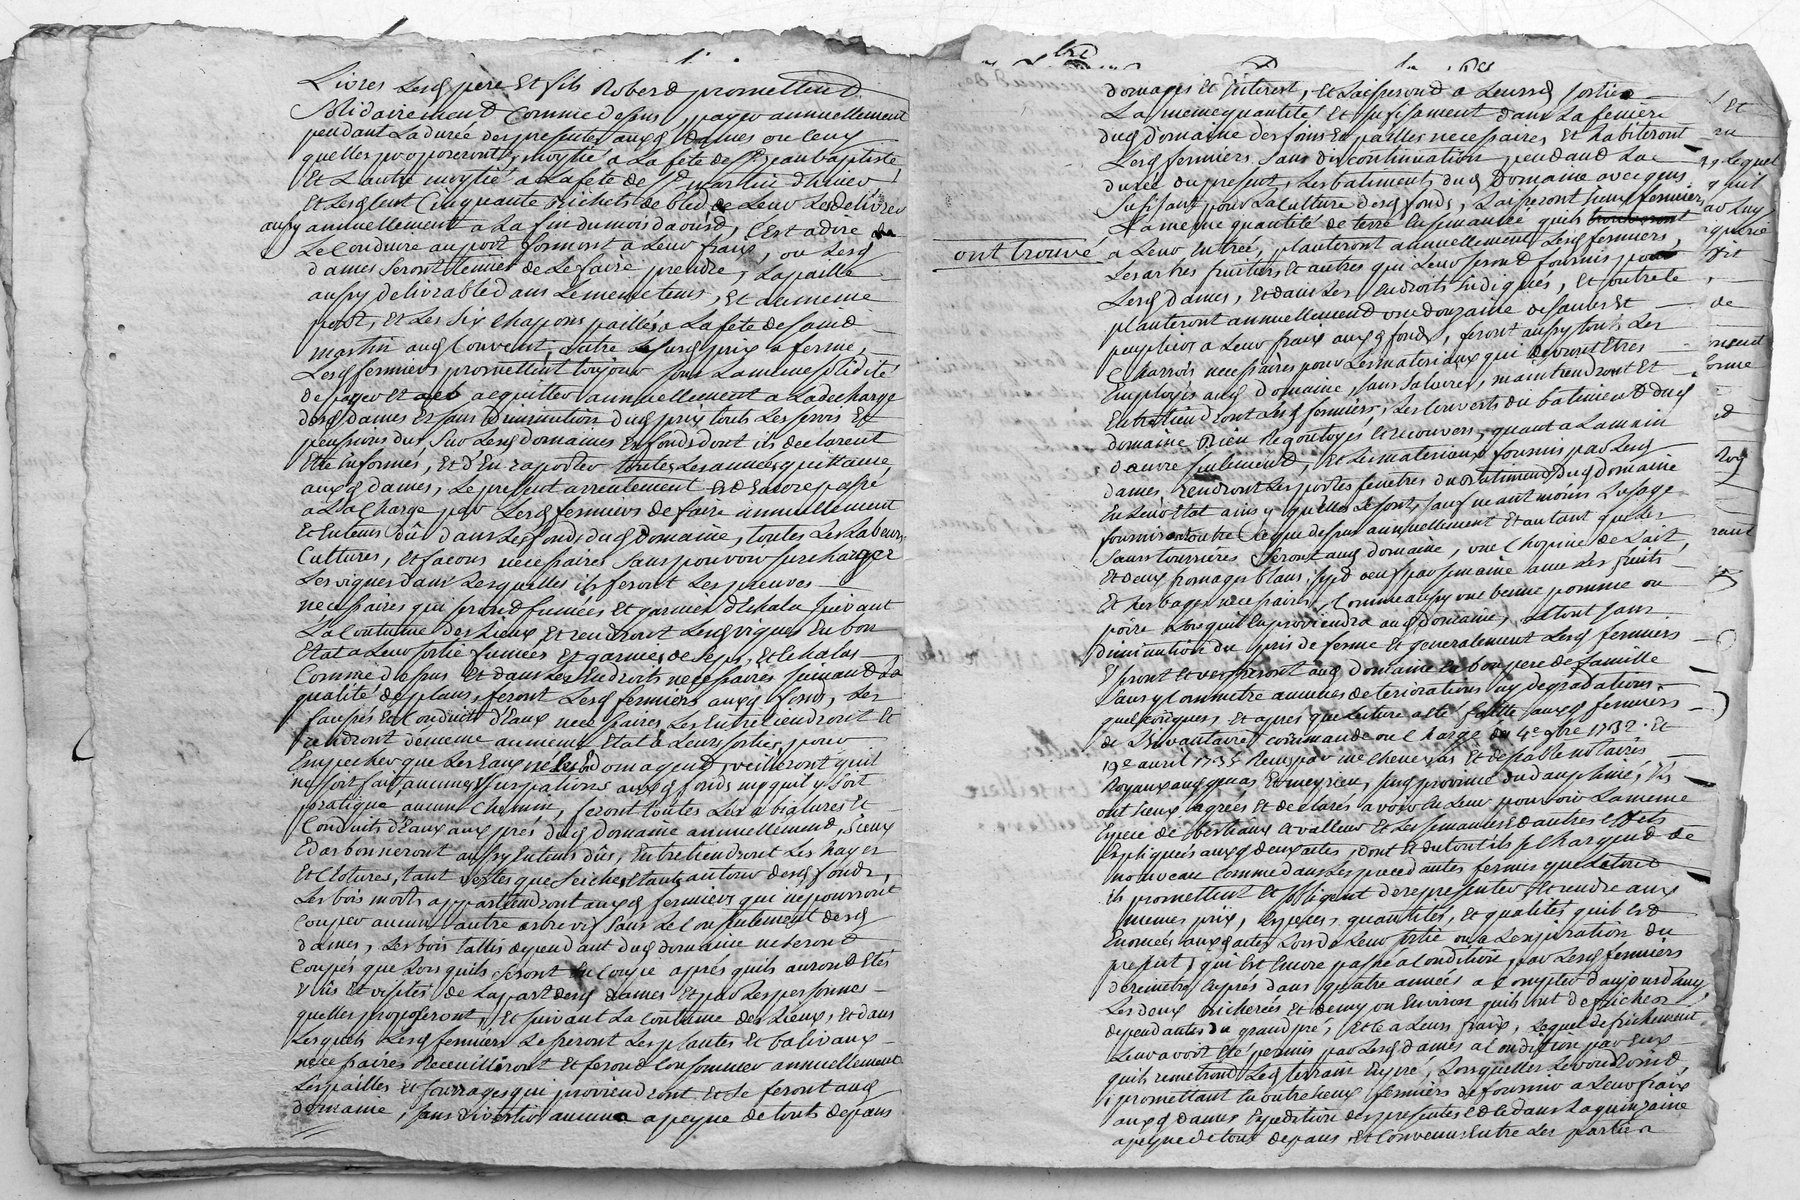 Livres Lesq pere Et fils Robert promettent
Solidairement Comme dessus, payer annuellement
pendant La durée des presentes auxq dames ou Ceux
quelles proposeront, moytié a La fête de St jean baptiste,
Et L'autre moytié a La fête de St martin d'hiver
Et Lesq Cent Cinquante bichets de bled de Leur Les delivrer
aussy annuellement a La fin du mois d'aoust, C'est a dire
Le Conduire au port formont a Leur fraix, ou Lesq
dames seront tenues de Le faire prendre, La paille
aussy delivrable dans Le meme tems, Et au meme
port, Et Les Six Chapons paillés a La fête de saint
martin auq Couvent, outre Le susq prix a ferme,
Lesq fermiers promettent toujour sous La meme solidité
de payer Et acquitter annuellement a La decharge
desq dames Et sans diminution duq prix touts Les servis Et
pensions dus sur Lesq domaines Et fonds dont ils declarent
Etre informés, Et d'En raporter toutes Les années quittance
auxq dames, Le present arrentement Est Encore passé
a La Charge par Lesq fermiers de faire annuellement
Et En tems dû dans Les fonds duq Domaine, toutes Les Labeurs,
Cultures, Et facons necessaires sans pouvoir surcharger
Les vignes dans Lesquelles ils feront Les preuves
necessaires qui seront fumées Et garnies d'Echala suivant
La Coutume des Lieux, Et rendront Lesq vignes En bon
Etat a Leur sortie fumées Et garnies de seps, Et Echalas
Comme dessus Et dans Les Endroits necessaires suivant La
qualité de plans, feront Lesq fermiers auxq fonds, Les
fossés Et Conduits d'Eaux necessaires Les Entretiendront Et
rendront de meme au meme Etat a Leur sortie, pour
Empecher que Les Eaux ne Les Endomagent, veilleront qu'il
ne soit fait aucunes Usurpations auxq fonds ny qu'il y soit
pratique aucun Chemin, feront toutes Les abiglures Et
Conduits d'Eaux aux prés duq Domaine annuellement, Iceux
Edarbonneront aussy En tems dûs, Entretiendront Les hayes
Et Clotures, tant vertes que seiches Etants autour desq fonds,
Les bois morts appartiendront auxq fermiers qui ne pourront
Couper aucun autre arbre vif sans Le Consentement desq
dames, Les bois taillis dependant duq domaine ne seront
Coupés que Lors quils seront En Coupe aprés quils auront Etés
vûs Et visités de La part desq dames Et par Les personnes
quelles proposeront, Et suivant La Coutume des Lieux, Et dans
Lesquels Lesq fermiers Laisseront Les plantes Et balivaux
necessaires Receuilliront Et feront Consommer annuellement
Les pailles Et fourrages qui proviendront Et se feront auq
domaine, sans divertir aucuns a peyne de touts depans
domages Et Interest, Et Laisseront a Leursq sortie
La meme quantité, Et suffisament dans La feniere
duq domaine des foins Et pailles necessaires, Et habiteront
Lesq fermiers sans discontinuation, pendant La
durée du present, Les batiments duq Domaine avec gens
suffisant pour La Culture desq fonds, Laisseront Iceux fermiers
La meme quantité de terre Ensemancée quils
ont trouvé a Leur Entrée, planteront annuellement Lesq fermiers,
Les arbres fruitiers Et autres qui Leur seront fournis par
Lesq dames, Et dans Les Endroits Indiqués, Et outre Ce
planteront annuellement une douzaine de saules Et
peupliers a Leur fraix auxq fonds, feront aussy touts Les
Charrois necessaires pour Les materiaux qui devront Etres
Employés auq domaine, sans salaires, maintiendront Et
Entretiendront Lesq fermiers, Les Couverts du batiment duq
domaine Bien Regoutoyés Et recouvers, quant a La main
d'œuvre seulement, Et Les materiaux fournis par Lesq
dames, rendront Les portes fenetres du batiment duq domaine
En Leur Etat ainsy quelles Le sont, sauf neantmoins L'usage
fourniront outre Ce que dessus annuellement Et autant que Les
sœurs tourrières seront auq domaine, une Chopine de Lait,
Et deux fromages blancs, sept œufs par semaine avec Les fruits
Et herbages necessaires, Comme aussy une benne pomme ou
poire Lorsqu'il En proviendra auq domaine, Le tout sans
diminution du prix de ferme Et generalement Lesq fermiers
Vivront Et verseront auq domaine En bon pere de famille
sans y Commetre aucunes deteriorations ny degradations
quelconques, Et apres que Lecture a eté faitte auxq fermiers
de L'Inventaire, commande ou Charge du 4e 9bre 1732. Et
19e avril 1735 Reçus par me Chenevas Et depable notaires
Royaux auq quas Et meyrieu, susq province du dauphiné, Ils
ont Iceux agrées Et declarés avoir En Leur pouvoir La meme
Espece de bestiaux a valleur Et Les semances Et autres effets
Expliqués auxq deux actes, dont Et du tout ils se chargent de
nouveau Comme dans Les precedantes fermes que dattent
ils promettent Et s'obligent de representer, Et rendre aux
memes prix, Especes, quantités, Et qualités qu'il Est
Enoncés auxq actes Lors de Leur sortie ou a L'expiration du
present, qui Est Encore passé a Condition, par Lesq fermiers
de remettre En prés dans quatre années a Compter d'aujourd'huy,
Les deux bicherées Et demy ou Environ quils ont defricher
dependantes du grand pré, Et Ce a Leurs fraix, Lequel defrichement
Leur avoit Eté permis par Lesq dames a Condition par Eux
quils remetront Lesq terrain En pré, Lorsqu'elles Le voudroint
promettant En outre Iceux fermiers de fournir a Leur fraix
auxq dames Expedition des presentes Et Ce dans La quinzaine
a peyne de tous depans, Et Convenus Entre Les parties